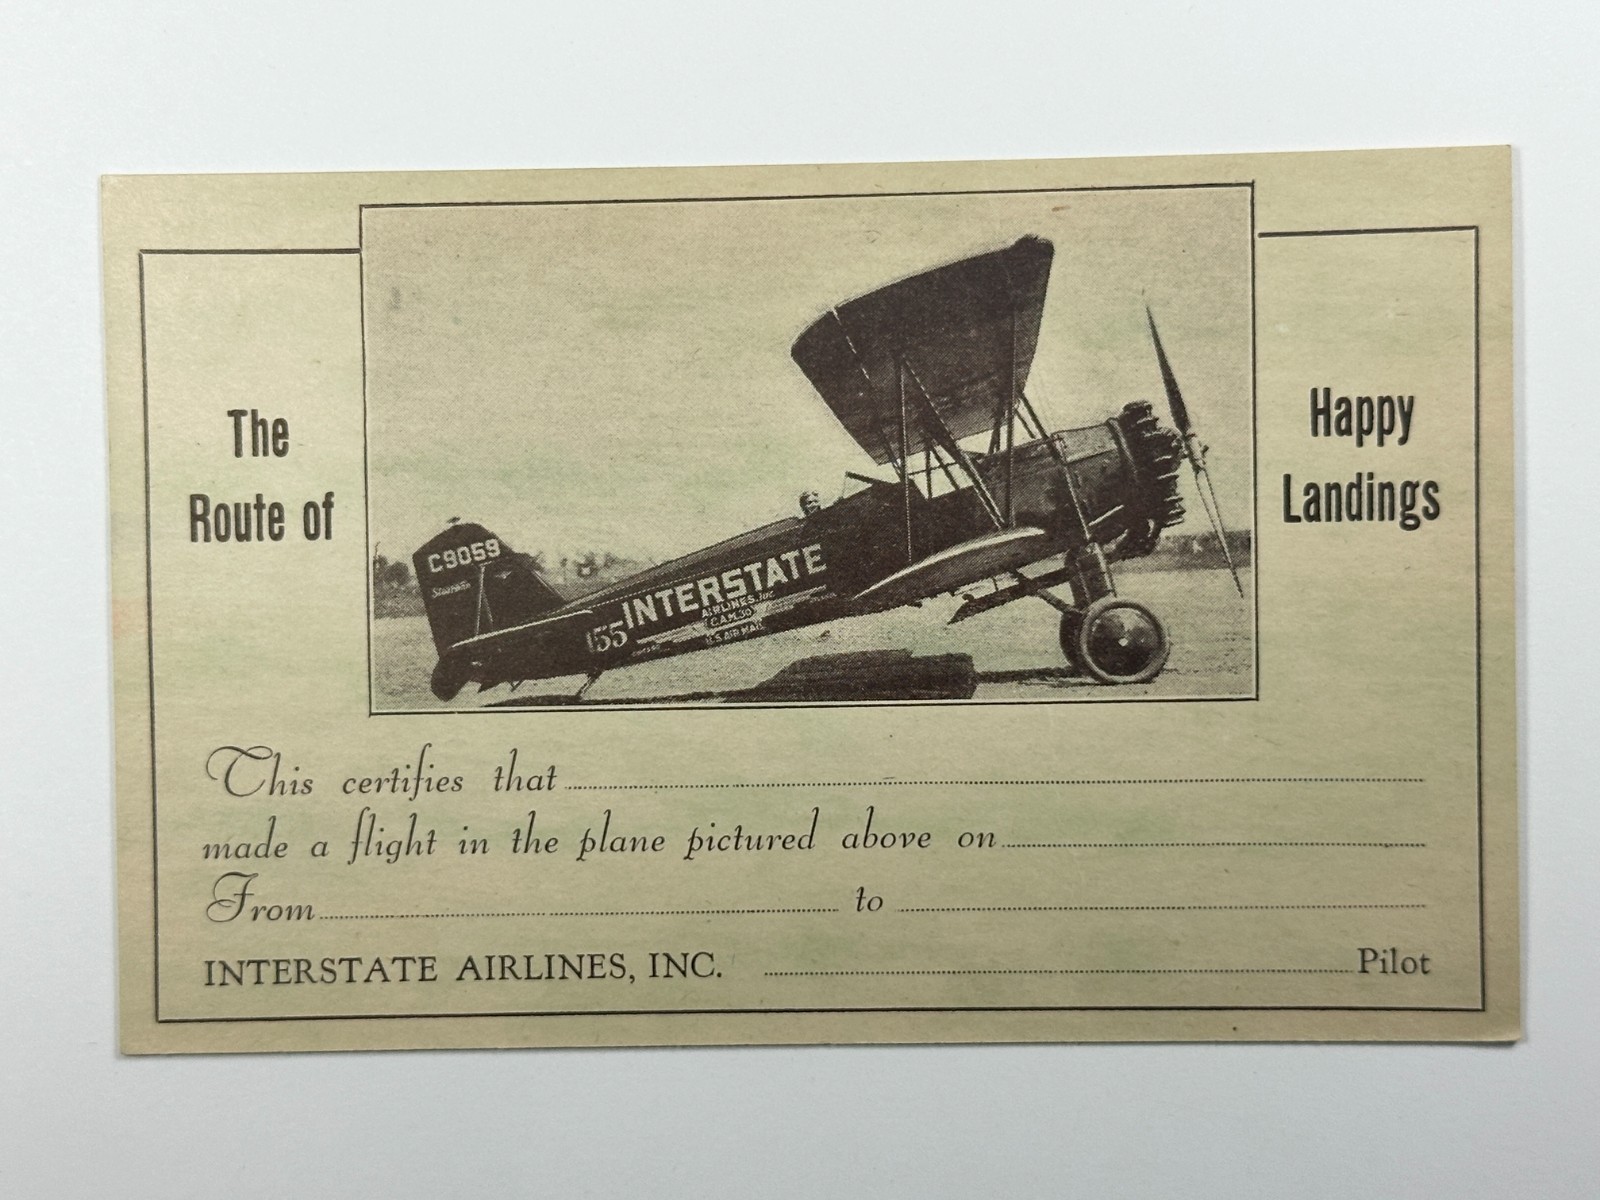 The
Route of
C9059
Stearman
155
INTERSTATE
AIRLINES, INC.
C.A.M. 30
U.S. AIR MAIL
Happy
Landings
This certifies that
made a flight in the plane pictured above on
From to
INTERSTATE AIRLINES, INC. Pilot